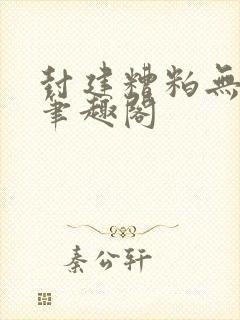 封建糟粕無
筆趣閣
秦公轩